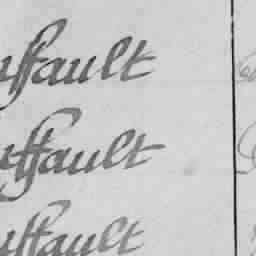 uffault
uffault
uffault